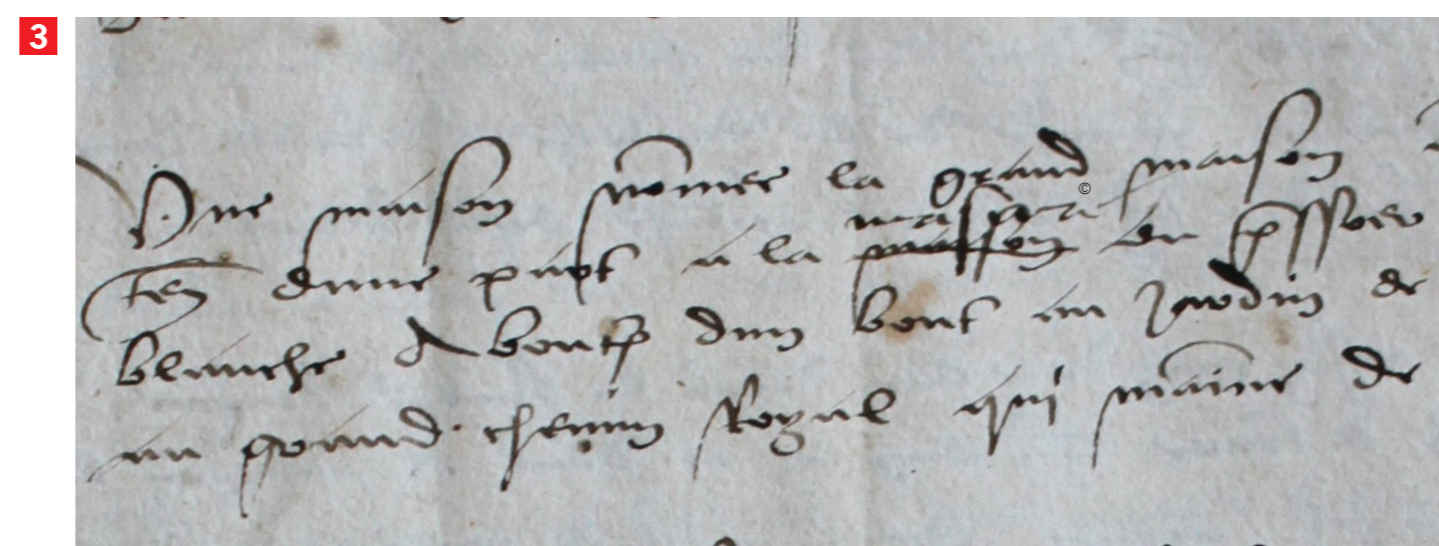 3
Une maison nõmee la grand maison
ten̄ dune part a la maison du pssoer
blanche About̃ dun bout au Jardin de
au grand chemin Royal qui maine de